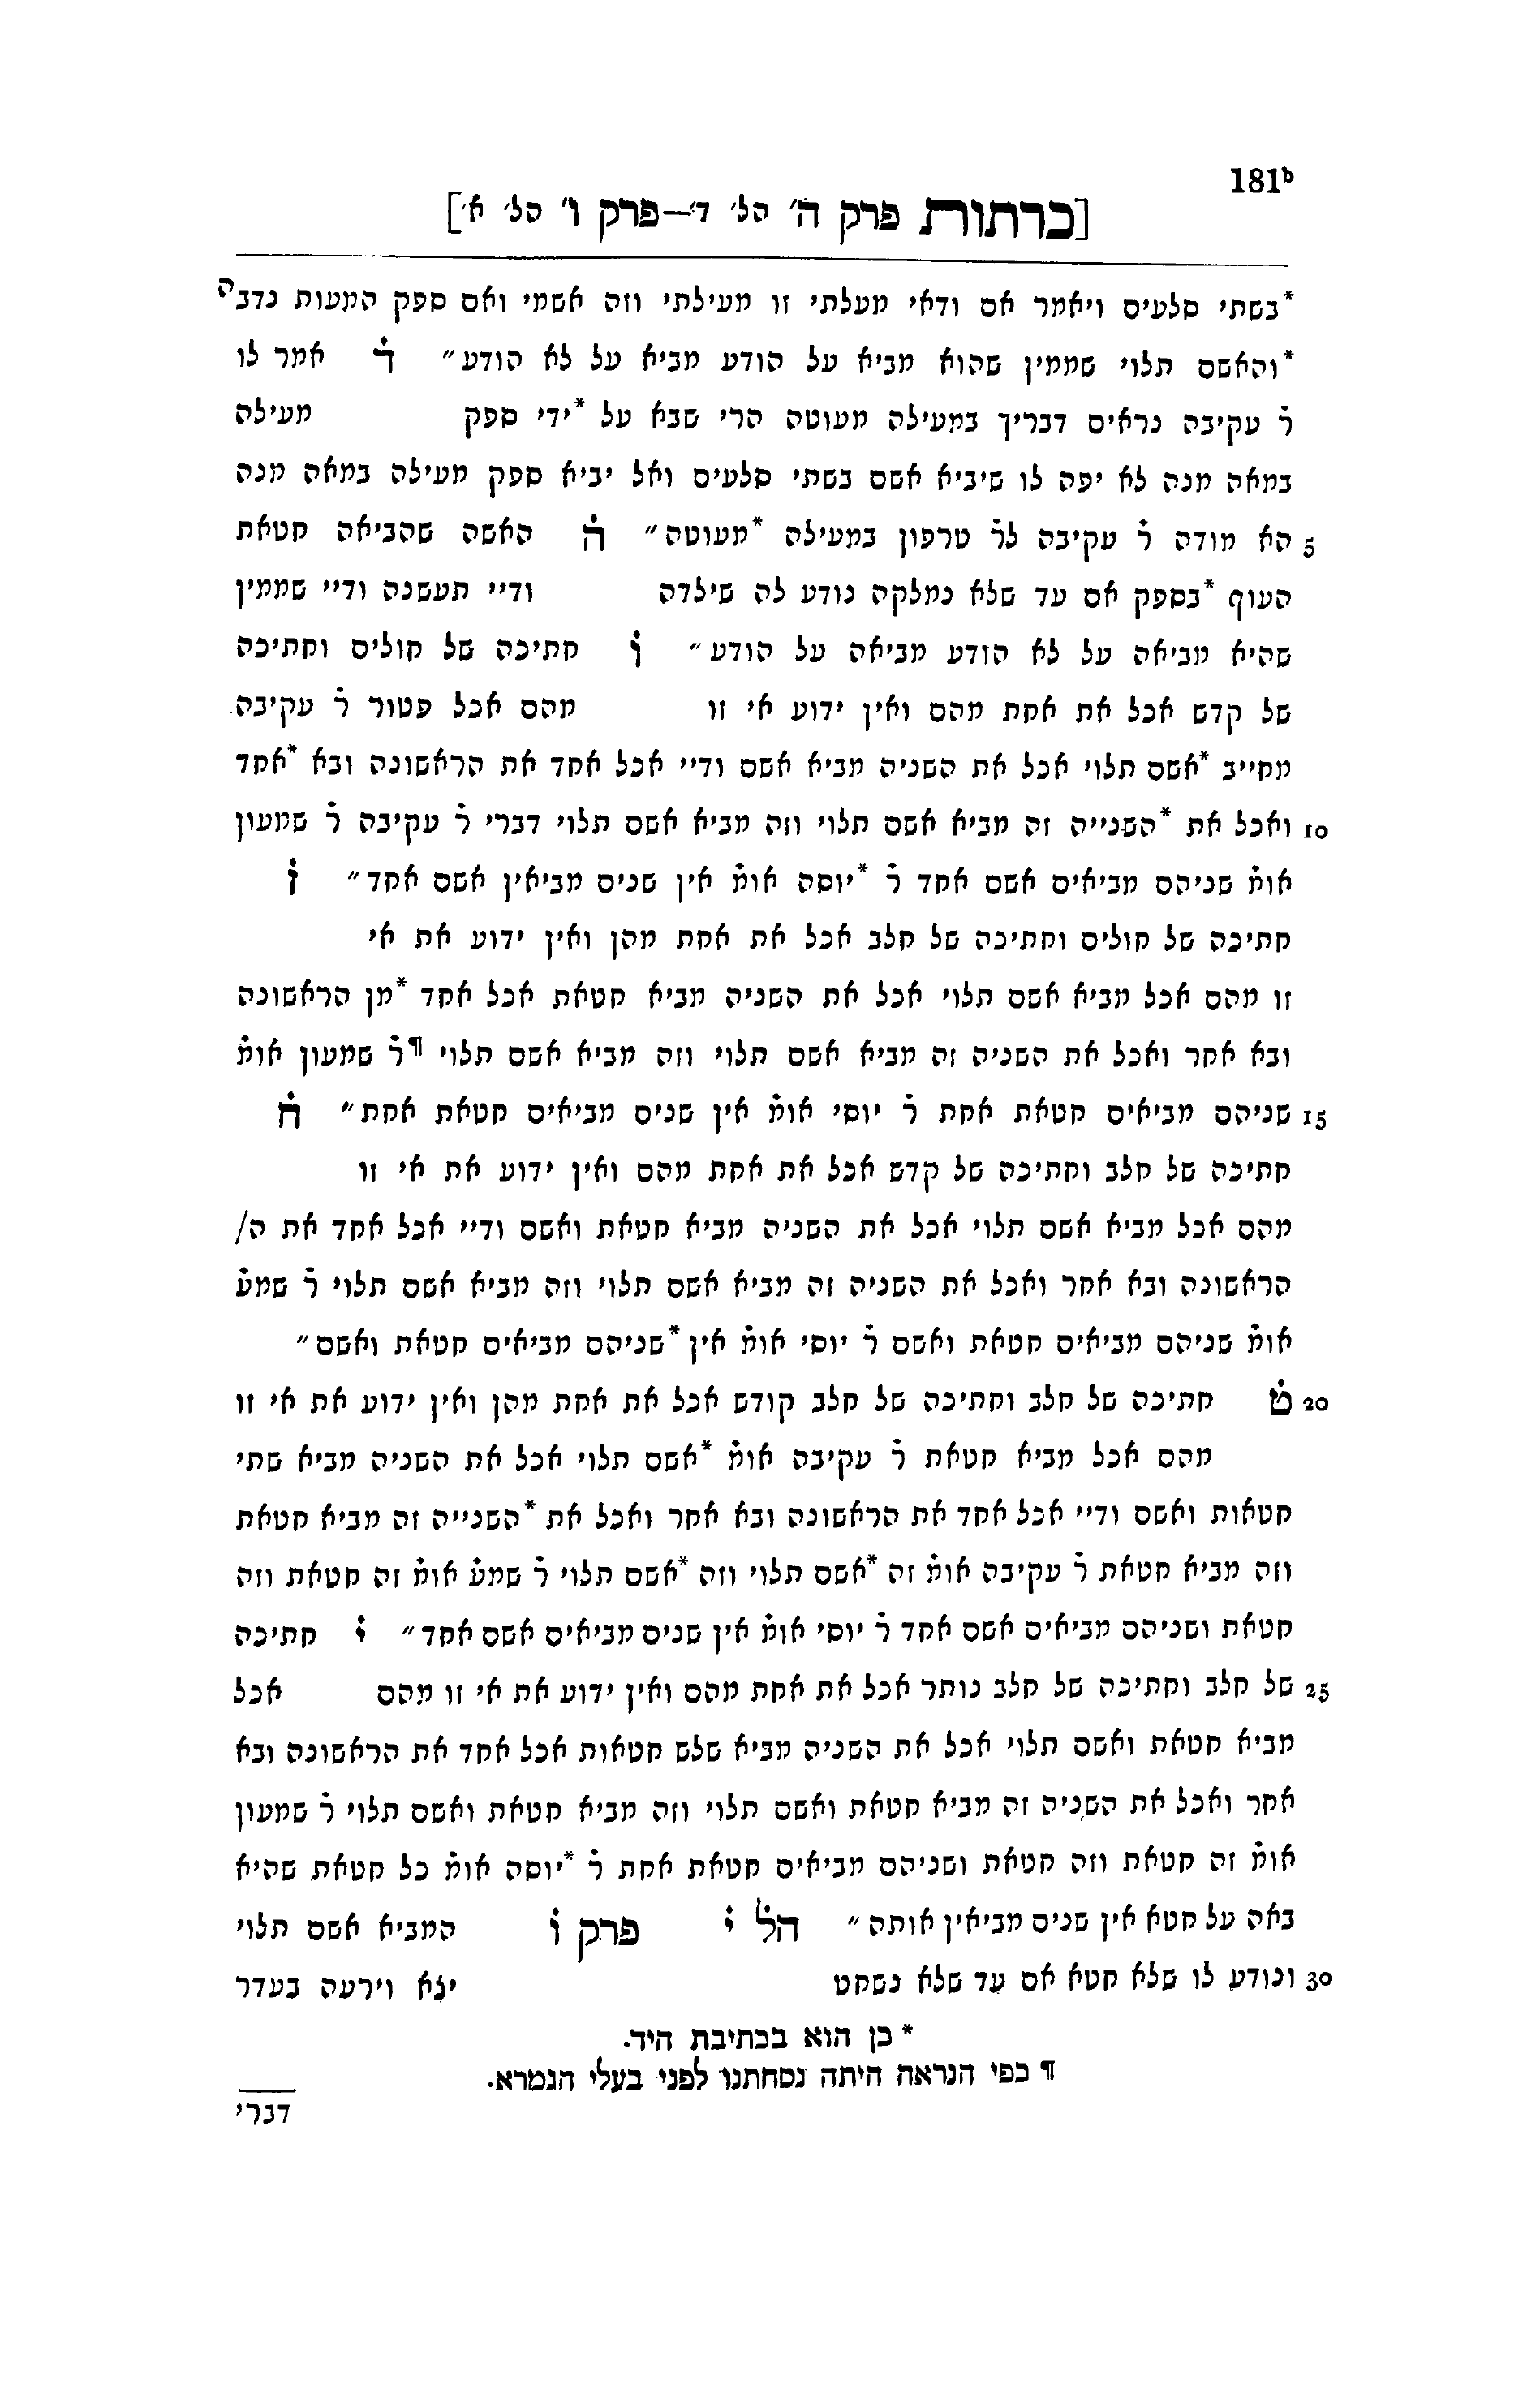 181b
[כרתות פרק ה' הל' ד'—פרק ו' הל' א']
*בשתי סלעים ויאמר אם ודאי מעלתי זו מעילתי וזה אשמי ואם ספק המעות נדבה
*והאשם תלוי שממין שהוא מביא על הודע מביא על לא הודע״ ד̇ אמר לו
ר̇ עקיבה נראים דבריך במעילה מעוטה הרי שבא על *ידי ספק מעילה
במאה מנה לא יפה לו שיביא אשם בשתי סלעים ואל יביא ספק מעילה במאה מנה
5 הא מודה ר̇ עקיבה לר̇ טרפון במעילה *מעוטה״ ה̇ האשה שהביאה חטאת
העוף *בספק אם עד שלא נמלקה נודע לה שילדה ודיי תעשנה ודיי שממין
שהיא מביאה על לא הודע מביאה על הודע״ ו̇ חתיכה של חולים וחתיכה
של קדש אכל את אחת מהם ואין ידוע אי זו מהם אכל פטור ר̇ עקיבה
מחייב *אשם תלוי אכל את השניה מביא אשם ודיי אכל אחד את הראשונה ובא *אחד
10 ואכל את *השנייה זה מביא אשם תלוי וזה מביא אשם תלוי דברי ר̇ עקיבה ר̇ שמעון
אומ̇ שניהם מביאים אשם אחד ר̇ *יוסה אומ̇ אין שנים מביאין אשם אחד״ ז̇
חתיכה של חולים וחתיכה של חלב אכל את אחת מהן ואין ידוע את אי
זו מהם אכל מביא אשם תלוי אכל את השניה מביא חטאת אכל אחד *מן הראשונה
ובא אחר ואכל את השניה זה מביא אשם תלוי וזה מביא אשם תלוי ¶ר̇ שמעון אומ̇
15 שניהם מביאים חטאת אחת ר̇ יוסי אומ̇ אין שנים מביאים חטאת אחת״ ח̇
חתיכה של חלב וחתיכה של קדש אכל את אחת מהם ואין ידוע את אי זו
מהם אכל מביא אשם תלוי אכל את השניה מביא חטאת ואשם ודיי אכל אחד את ה/
הראשונה ובא אחר ואכל את השניה זה מביא אשם תלוי וזה מביא אשם תלוי ר̇ שמע̇
אומ̇ שניהם מביאים חטאת ואשם ר̇ יוסי אומ̇ אין *שניהם מביאים חטאת ואשם״
20 ט̇ חתיכה של חלב וחתיכה של חלב קודש אכל את אחת מהן ואין ידוע את אי זו
מהם אכל מביא חטאת ר̇ עקיבה אומ̇ *אשם תלוי אכל את השניה מביא שתי
חטאות ואשם ודיי אכל אחד את הראשונה ובא אחר ואכל את *השנייה זה מביא חטאת
וזה מביא חטאת ר̇ עקיבה אומ̇ זה *אשם תלוי וזה *אשם תלוי ר̇ שמע̇ אומ̇ זה חטאת וזה
חטאת ושניהם מביאים אשם אחד ר̇ יוסי אומ̇ אין שנים מביאים אשם אחד״ י̇ חתיכה
25 של חלב וחתיכה של חלב נותר אכל את אחת מהם ואין ידוע את אי זו מהם אכל
מביא חטאת ואשם תלוי אכל את השניה מביא שלש חטאות אכל אחד את הראשונה ובא
אחר ואכל את השניה זה מביא חטאת ואשם תלוי וזה מביא חטאת ואשם תלוי ר̇ שמעון
אומ̇ זה חטאת וזה חטאת ושניהם מביאים חטאת אחת ר̇ *יוסה אומ̇ כל חטאת שהיא
באה על חטא אין שנים מביאין אותה״ הל̇ י̇ פרק ו̇ המביא אשם תלוי
30 ונודע לו שלא חטא אם עד שלא נשחט יצא וירעה בעדר
* כן הוא בכתיבת היד.
¶ כפי הנראה היתה נסחתנו לפני בעלי הגמרא.
דברי